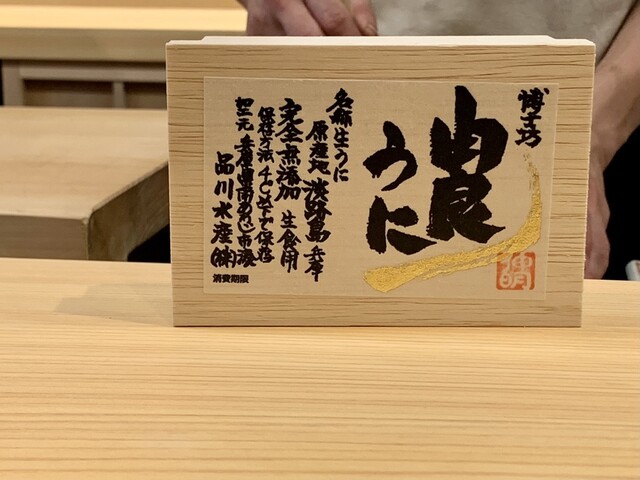 博士坊
由良
うに
名称 生うに
原産地 淡路島 兵庫
完全無添加 生食用
保存方法 チルドで保存
製造元 兵庫県南あわじ市湊
品川水産(株)
消費期限